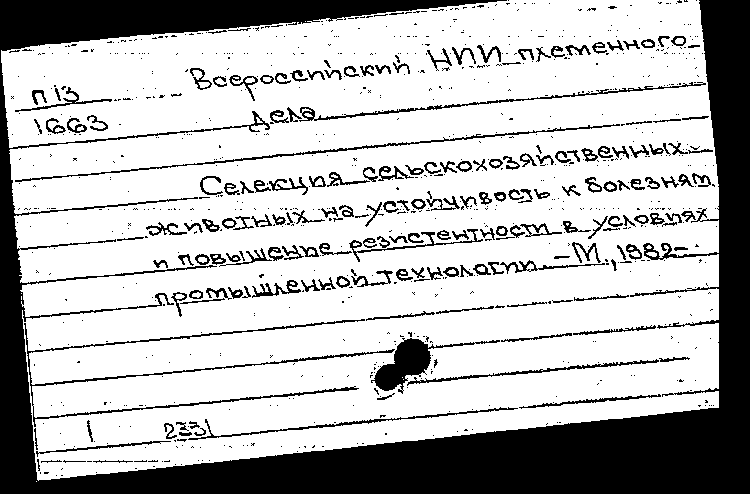 П13 Всероссийский НИИ племенного
1663 дела
Селекция сельскохозяйственных
животных на устойчивость к болезням
и повышение резистентности в условиях
промышленной технологии. - М., 1982-.
1 2331